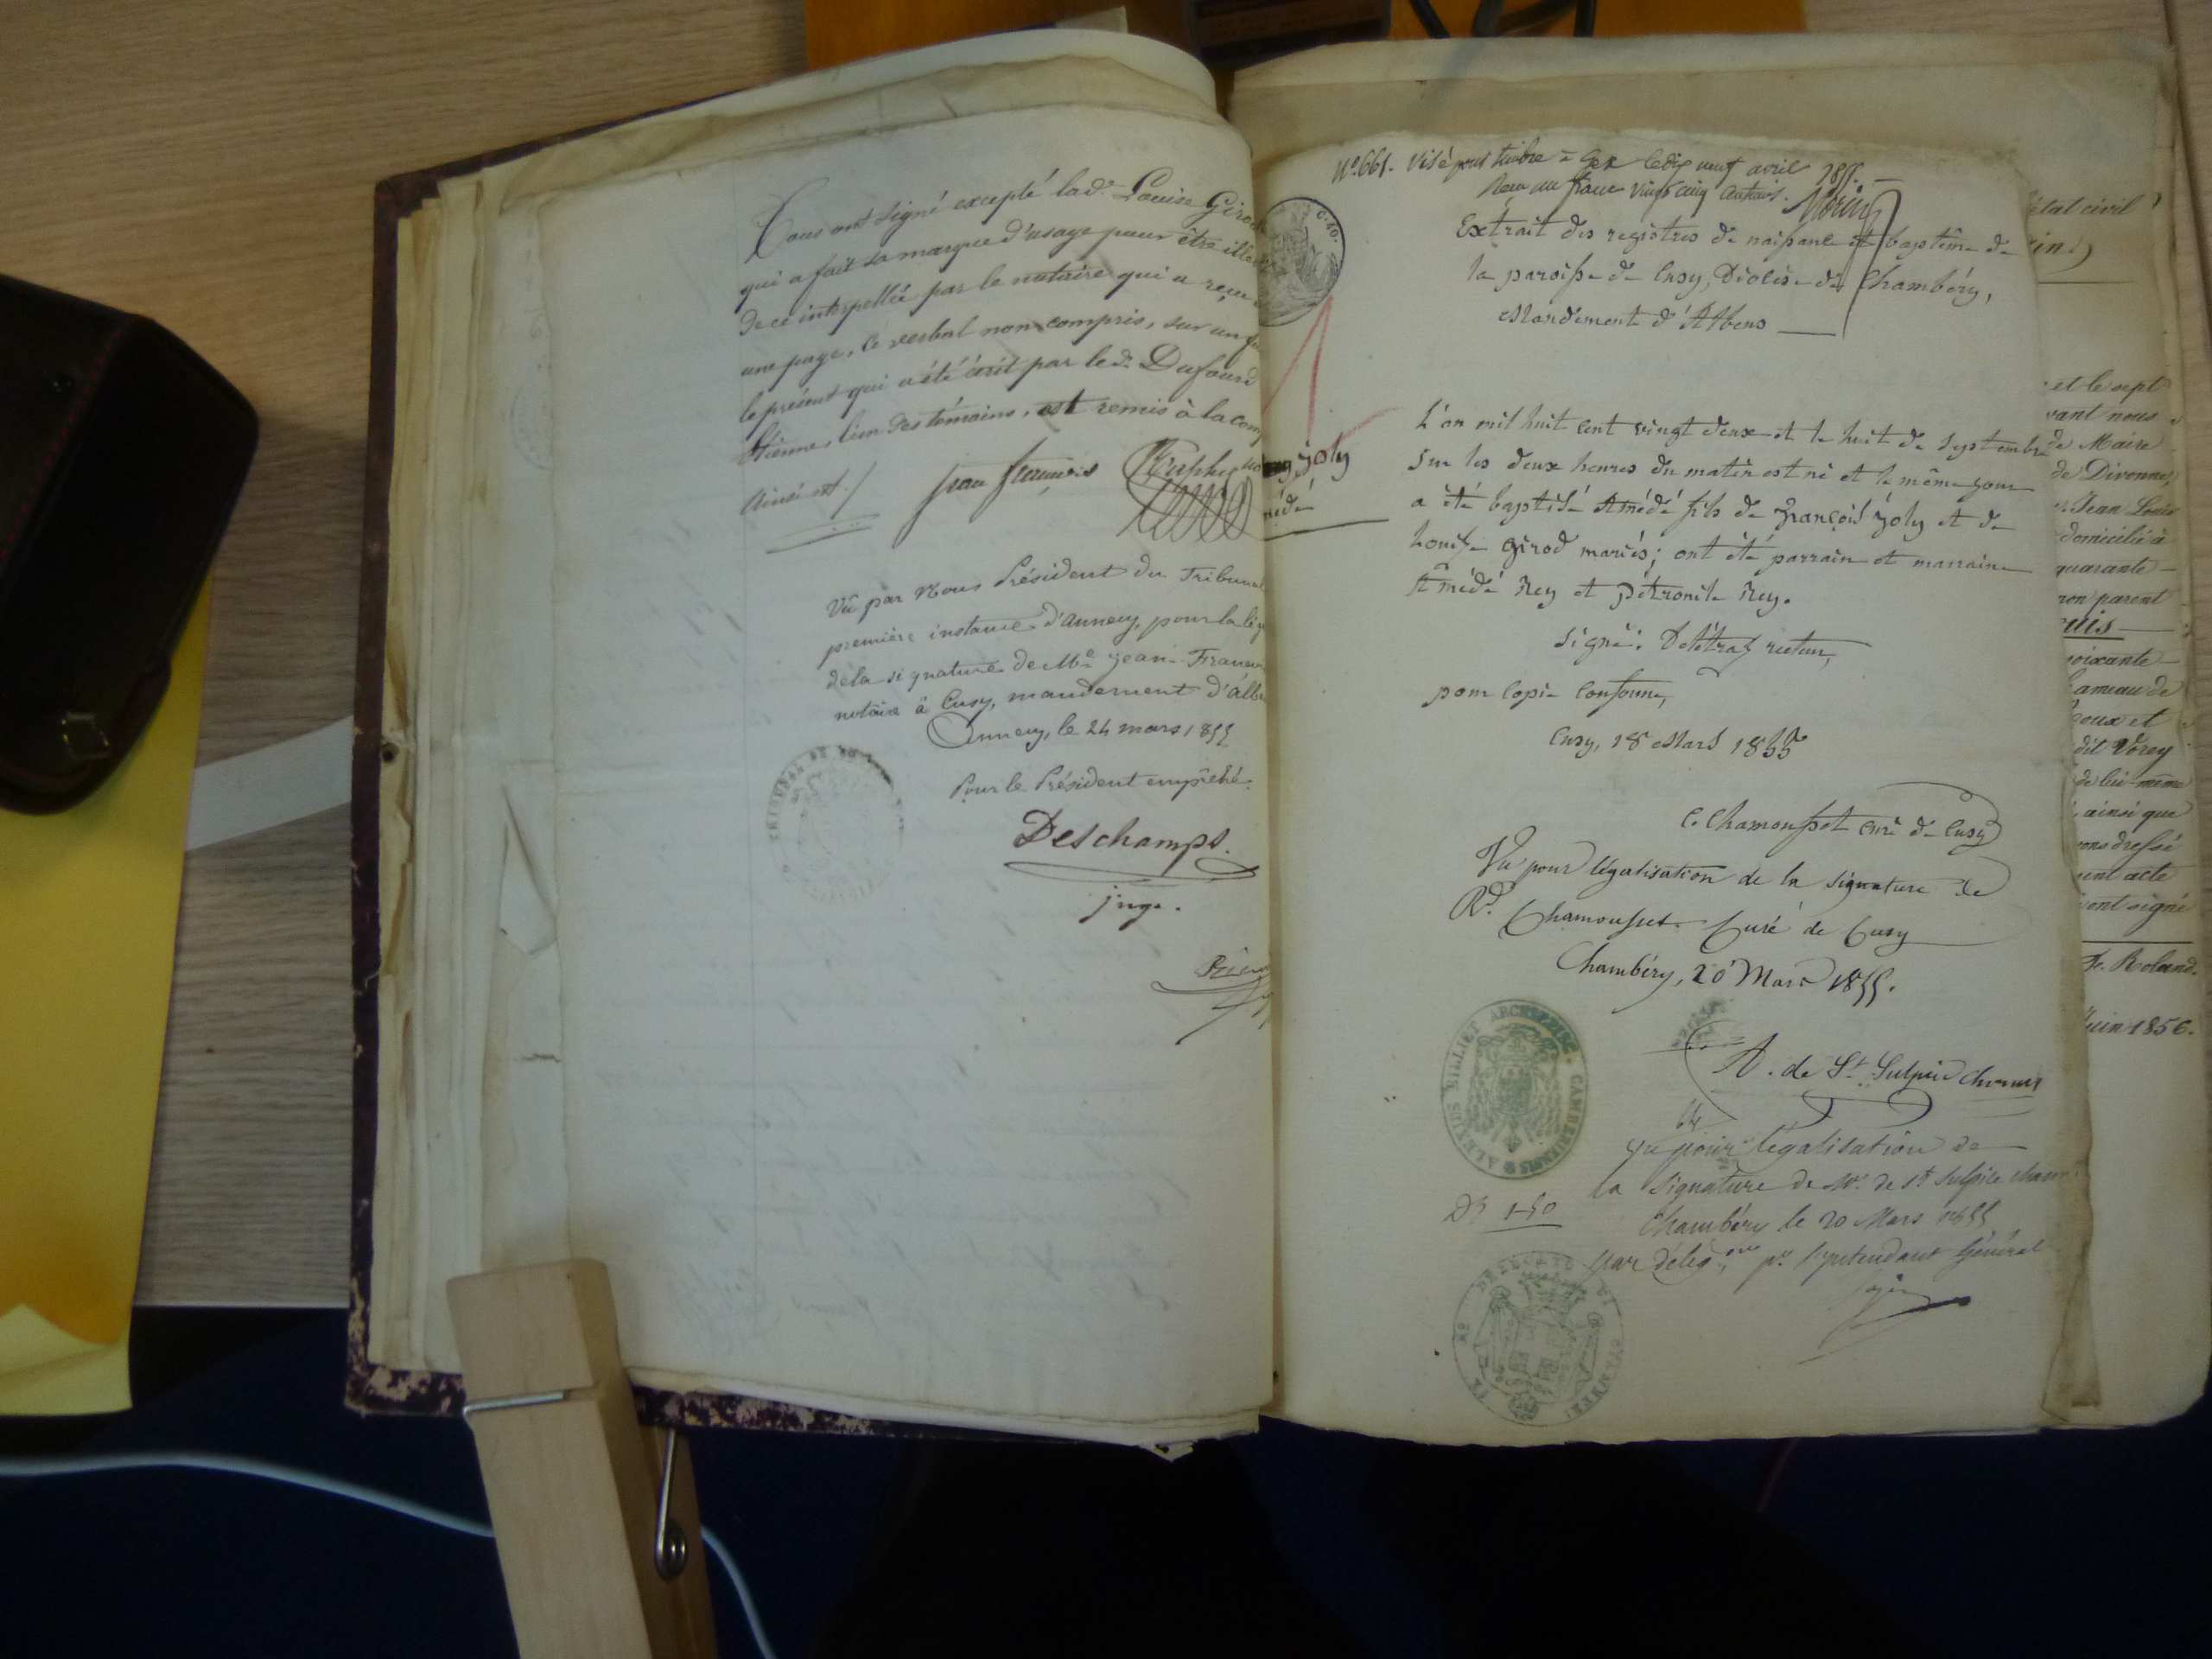 Tous ont signé excepté lad.e Louise Girod
qui a fait sa marque d'usage pour être
de ce interpellée par le notaire qui a reçu
une page, le verbal non compris, sur un
le présent qui a été écrit par le d. Dufourd
Etienne, l'un des témoins, est remis à la
ainsi est./
jean françois
Vû par Nous Président du Tribunal
première instance d'annecy, pour la
de la signature de Me jean-François
notaire à Cusy, mandement d'
Annecy, le 24 mars 1855
Pour le Président empêché
Deschamps.
juge.
No. 661. Visé pour timbre à Gex le dix neuf avril 1855.
Reçu un franc vingt cinq centimes. Morin
C. 40.
Extrait des registres de naissance et baptême de
la paroisse de Cusy, Diocèse de Chambéry,
Mandement d'Albens
joly
L'an mil huit cent vingt deux et le huit de septembre
sur les deux heures du matin est né et le même jour
a été baptisé Amédé fils de François joly et de
Louise girod mariés; ont été parrain et marraine
Amédé Rey et pétronile Rey.
signé: Delétraz recteur,
pour copie conforme,
Cusy, 18 Mars 1855
C. Chamousset curé de Cusy
Vu pour légalisation de la signature de
Rd. Chamousset Curé de Cusy
Chambéry, 20 Mars 1855.
A. de St. Sulpice
ALEXIUS BILLIET ARCHIEPISC. CAMBERIENSIS
Vu pour légalisation de
la signature de Mr. de St Sulpice
Chambéry le 20 Mars 1855
par délég.on pr. l'Intendant Général
Dt 1-50
état civil
et le sept
vant nous
de Maire
de Divonne,
Jean Louis
domicilié à
quarante
non parent
soixante
hameau de
dit Vorey
de lui-même
ainsi que
vons dressé
sent acte
ont signé
F. Roland.
Juin 1856.